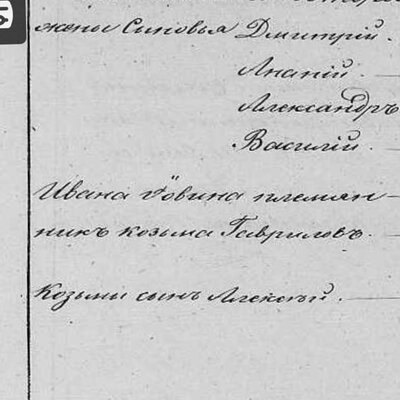 жены Сыновья Дмитрій.
Ананій.
Александръ
Василій.
Ивана Іовина племян-
никъ козьма Гавриловъ.
Козьмы сынъ Алексѣй.